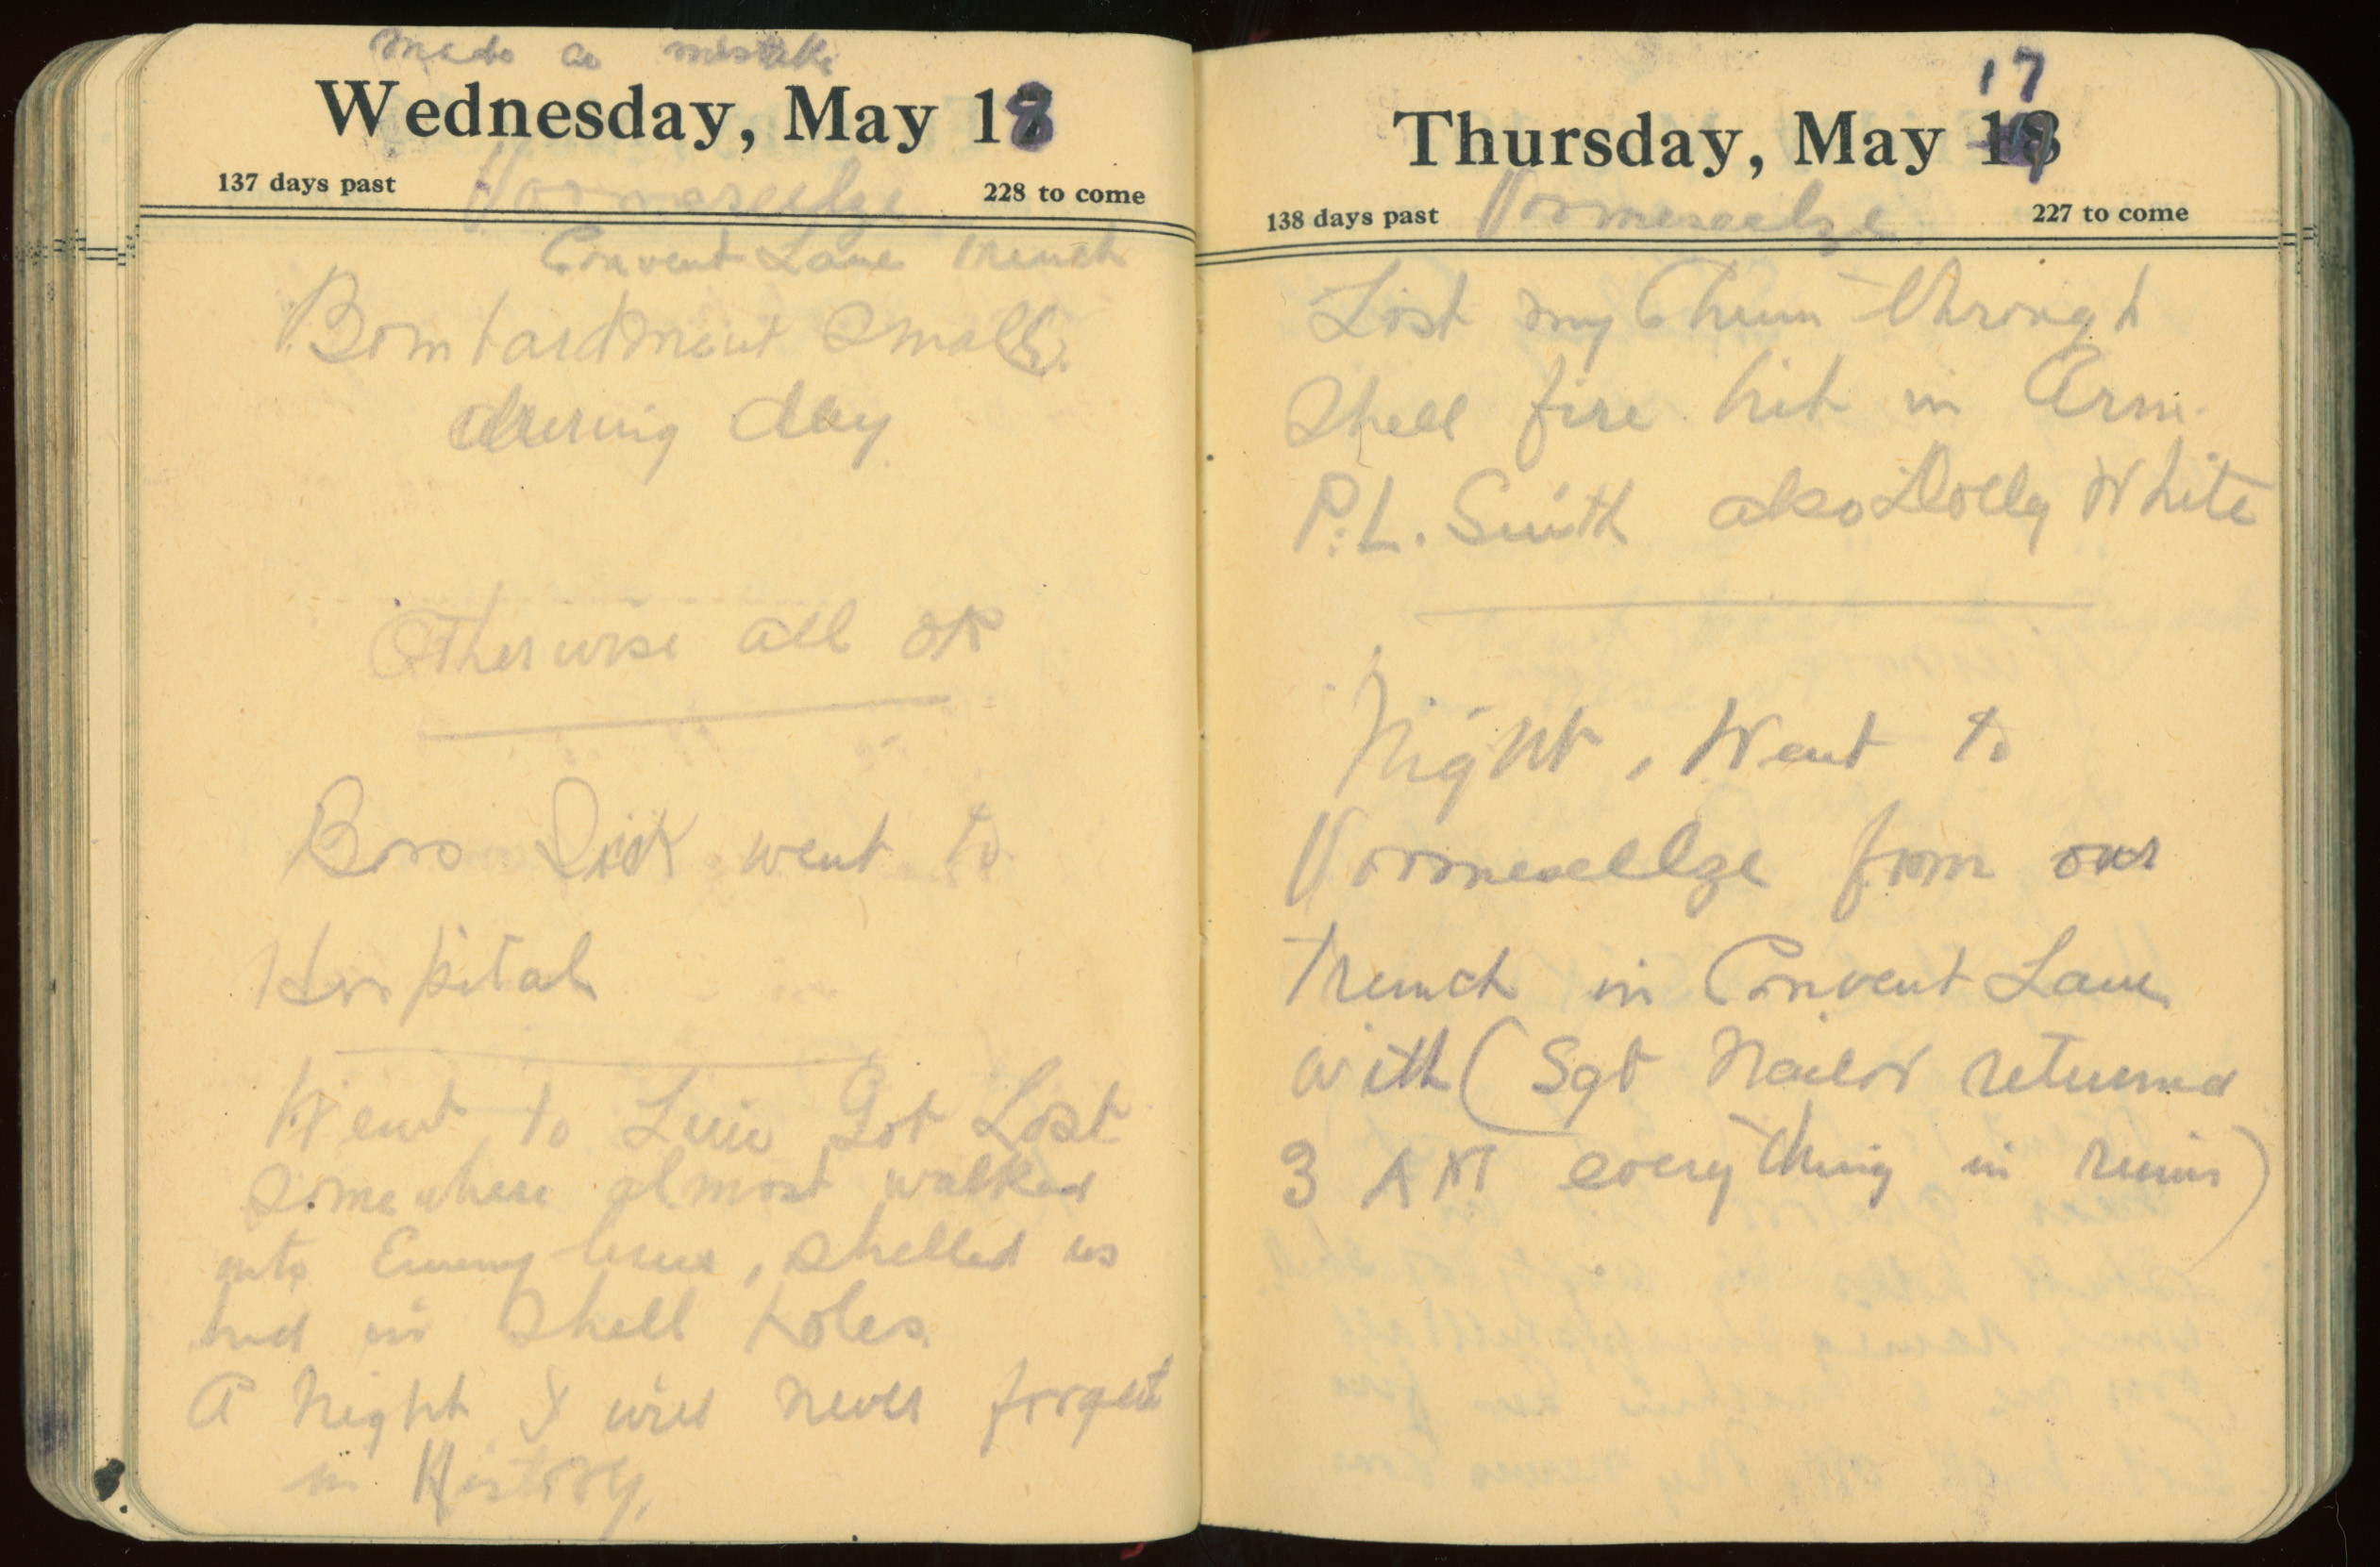 made a mistake
Wednesday, May 18
137 days past
Voormezeelze
228 to come
Convent Lane Trench
Bombardment Small
during day
Otherwise all OK
Bro Dick went to
Hospital
Went to Line Got Lost
Somewhere almost walked
into Enemy lines, shelled us
hid in Shell holes
A Night I will never forget
in History.
17
Thursday, May 18
138 days past
Voormeseelze
227 to come
Lost my Chum through
Shell fire hit in Arm.
P.L. Smith also Dolly White
Night, Went to
Voormeseelze from our
trench in Convent Lane
with (Sgt Nailor returned
3 AM everything in ruins)